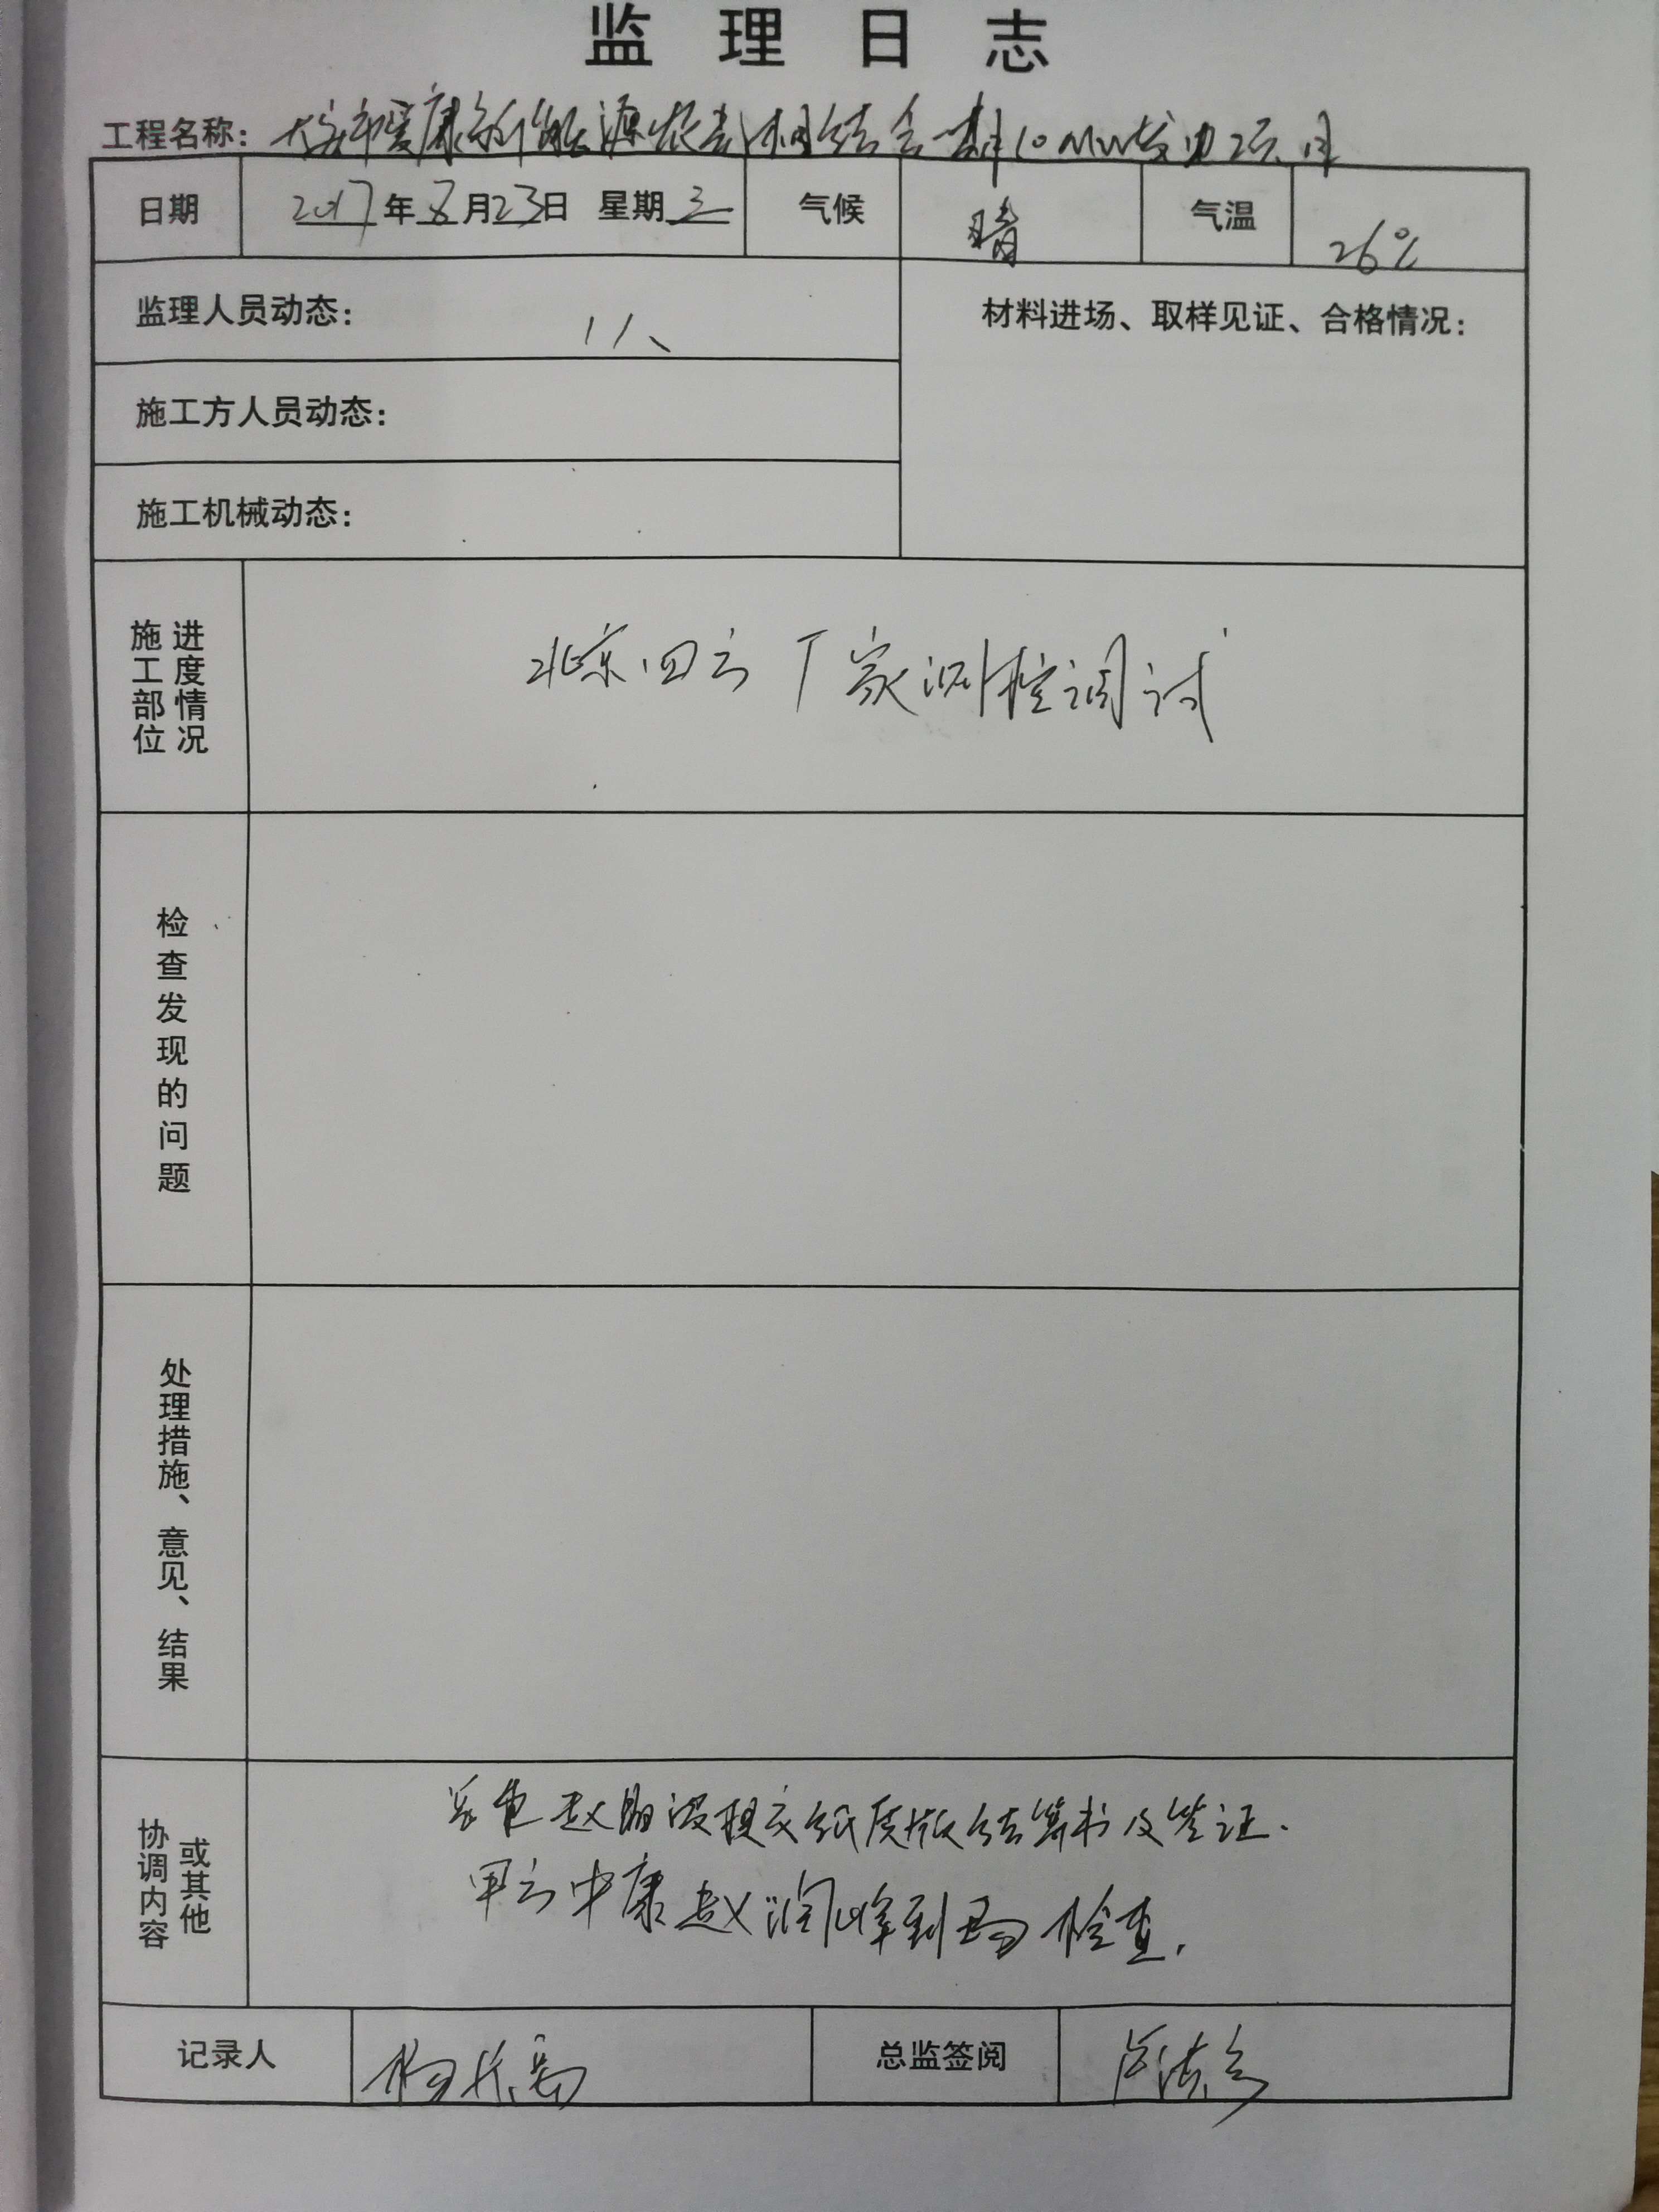 监理日志
工程名称：大安市爱康新能源农光相结合一期10MW发电项目
日期 2017年8月23日 星期三 气候 晴 气温 26℃
监理人员动态： 1人 材料进场、取样见证、合格情况：
施工方人员动态：
施工机械动态：
施工部位 进度情况 北京四方厂家测控调试
检查发现的问题
处理措施、意见、结果
协调内容 或其他 赵明波提交纸质版结算书及签证.
甲方中康赵润峰到场检查.
记录人 总监签阅